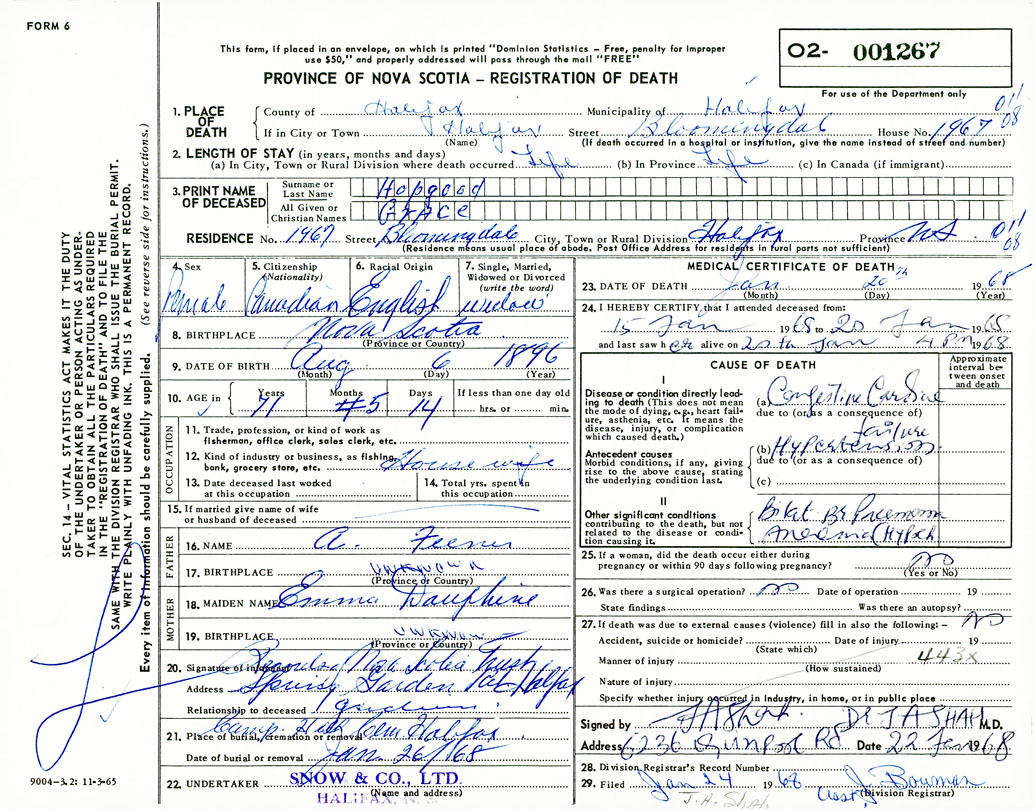 FORM 6
This form, if placed in an envelope, on which is printed "Dominion Statistics – Free, penalty for improper
use $50," and properly addressed will pass through the mail "FREE"
PROVINCE OF NOVA SCOTIA – REGISTRATION OF DEATH
O2- 001267
For use of the Department only
011
08
1. PLACE OF DEATH
County of Halifax Municipality of Halifax
If in City or Town Halifax Street Bloomingdale House No. 1967
(Name) (If death occurred in a hospital or institution, give the name instead of street and number)
2. LENGTH OF STAY (in years, months and days)
(a) In City, Town or Rural Division where death occurred Life (b) In Province Life (c) In Canada (if immigrant)
3. PRINT NAME OF DECEASED
Surname or Last Name Hopgood
All Given or Christian Names Grace
RESIDENCE No. 1967 Street Bloomingdale City, Town or Rural Division Halifax Province N.S. 011
08
(Residence means usual place of abode. Post Office Address for residents in rural parts not sufficient)
4. Sex Female
5. Citizenship (Nationality) Canadian
6. Racial Origin English
7. Single, Married, Widowed or Divorced (write the word) widow
8. BIRTHPLACE Nova Scotia
(Province or Country)
9. DATE OF BIRTH Aug 6 1896
(Month) (Day) (Year)
10. AGE in Years 71 Months 5 Days 14 If less than one day old
hrs. or min.
OCCUPATION
11. Trade, profession, or kind of work as
fisherman, office clerk, sales clerk, etc.
12. Kind of industry or business, as fishing,
bank, grocery store, etc. House wife
13. Date deceased last worked
at this occupation
14. Total yrs. spent in
this occupation
15. If married give name of wife
or husband of deceased
FATHER
16. NAME A. Feener
17. BIRTHPLACE UNKNOWN
(Province or Country)
MOTHER
18. MAIDEN NAME Emma Dauphine
19. BIRTHPLACE UNKNOWN
(Province or Country)
20. Signature of informant Nova Scotia Trust
Address Spring Garden Rd Halifax
Relationship to deceased
21. Place of burial, cremation or removal Camp Hill Cem Halifax
Date of burial or removal Jan. 26/68
22. UNDERTAKER SNOW & CO., LTD.
(Name and address)
HALIFAX, N. S.
MEDICAL CERTIFICATE OF DEATH
23. DATE OF DEATH Jan 20th 1968
(Month) (Day) (Year)
24. I HEREBY CERTIFY that I attended deceased from:
15 Jan 1968 to 20 Jan 1968
and last saw her alive on 20th Jan 4 PM 1968
CAUSE OF DEATH
Approximate interval between onset and death
I
Disease or condition directly leading to death (This does not mean the mode of dying, e.g., heart failure, asthenia, etc. It means the disease, injury, or complication which caused death.)
(a) Congestive Cardiac failure
due to (or as a consequence of)
Antecedent causes
Morbid conditions, if any, giving rise to the above cause, stating the underlying condition last.
(b) Hypertension
due to (or as a consequence of)
(c)
II
Other significant conditions contributing to the death, but not related to the disease or condition causing it.
Bilat Br Pneumonia
Anaemia
25. If a woman, did the death occur either during
pregnancy or within 90 days following pregnancy? no
(Yes or No)
26. Was there a surgical operation? no Date of operation 19
State findings Was there an autopsy?
27. If death was due to external causes (violence) fill in also the following: – no
Accident, suicide or homicide? Date of injury 19
(State which)
443x
Manner of injury
(How sustained)
Nature of injury
Specify whether injury occurred in industry, in home, or in public place
Signed by J A Shah Dr J A SHAH M.D.
Address 6236 Quinpool Rd Date 22 Jan 1968
28. Division Registrar's Record Number
29. Filed Jan 24 1968 J. Bowman
Asst. (Division Registrar)
J. A. Shah
SEC. 14 – VITAL STATISTICS ACT MAKES IT THE DUTY
OF THE UNDERTAKER OR PERSON ACTING AS UNDER-
TAKER TO OBTAIN ALL THE PARTICULARS REQUIRED
IN THE "REGISTRATION OF DEATH" AND TO FILE THE
SAME WITH THE DIVISION REGISTRAR WHO SHALL ISSUE THE BURIAL PERMIT.
WRITE PLAINLY WITH UNFADING INK. THIS IS A PERMANENT RECORD.
Every item of information should be carefully supplied. (See reverse side for instructions.)
9004–3.2: 11-3-65